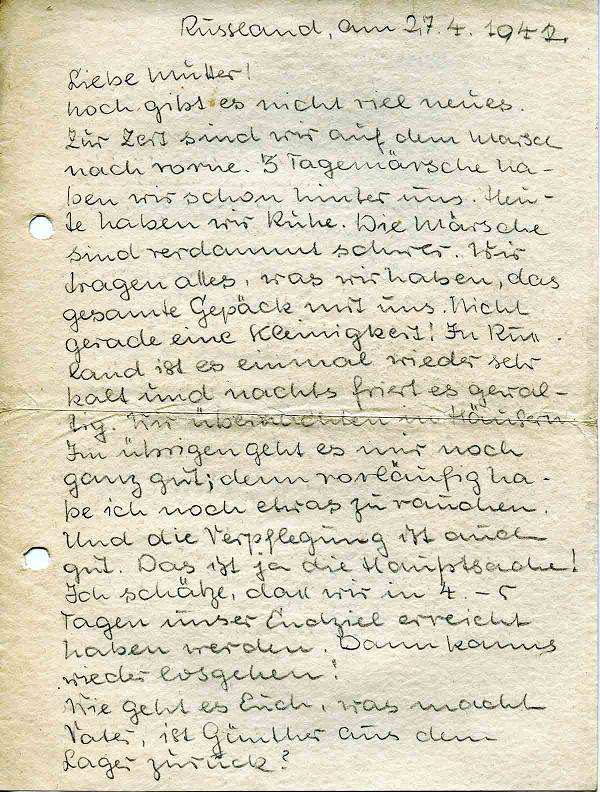 Russland, am 27.4.1942.
Liebe Mutter!
noch gibt es nicht viel neues.
Zur Zeit sind wir auf dem Marsch
nach vorne. 3 Tagemärsche ha-
ben wir schon hinter uns. Heu-
te haben wir Ruhe. Die Märsche
sind verdammt schwer. Wir
tragen alles, was wir haben, das
gesamte Gepäck mit uns. Nicht
gerade eine Kleinigkeit! In Russ-
land ist es einmal wieder sehr
kalt und nachts friert es gewal-
tig. Wir übernachten in Häusern
Im übrigen geht es mir noch
ganz gut; denn vorläufig ha-
be ich noch etwas zu rauchen.
Und die Verpflegung ist auch
gut. Das ist ja die Hauptsache!
Ich schätze, dass wir in 4.-5
Tagen unser Endziel erreicht
haben werden. Dann kanns
wieder losgehen!
Wie geht es Euch, was macht
Vater, ist Günther aus dem
Lager zurück?